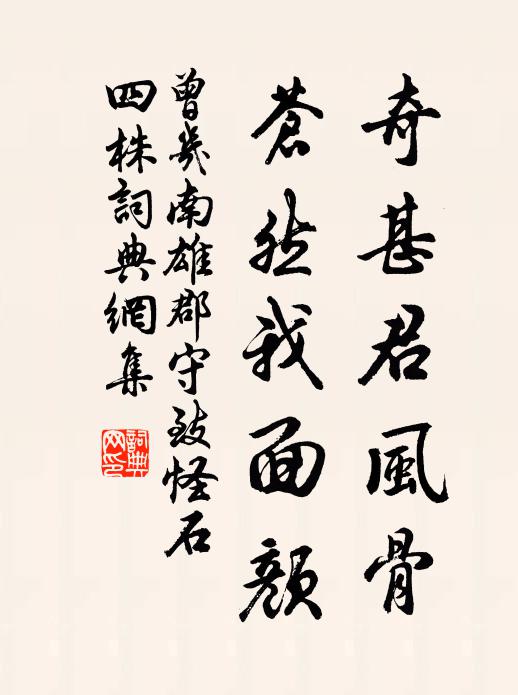 奇甚君風骨
蒼然我面顏
曾幾南雄郡守致怪石
四株詞典網集
詞典
网印